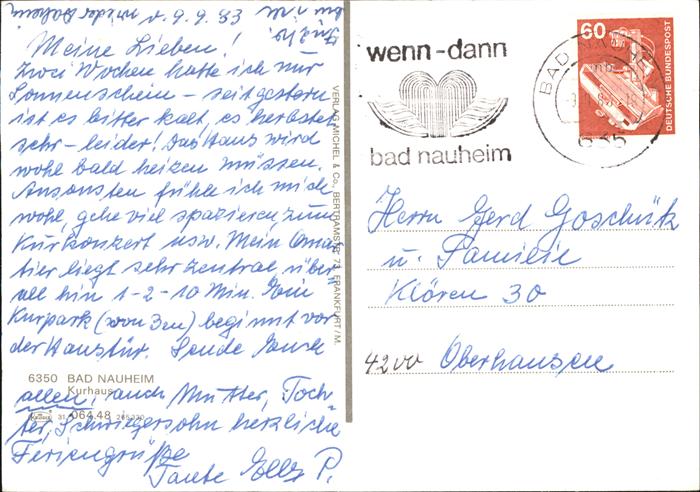 Meine Lieben!
Zwei Wochen hatte ich nur
Sonnenschein – seit gestern
ist es bitter kalt, es herbstet
sehr – leider! Das Haus wird
wohl bald heizen müssen.
Ansonsten fühle ich mich
wohl, gehe viel spazieren, zum
Kurkonzert usw. Mein Quar-
tier liegt sehr zentral, über-
all hin 1-2-10 Min. Ein
Kurpark (von 3en) beginnt vor
der Haustür. Sende Euch
allen, auch Mutter, Toch-
ter, Schwiegersohn herzliche
Feriengrüße
Tante P.
bin ich wieder daheim
6350 BAD NAUHEIM
Kurhaus
31 064.48
VERLAG MICHEL & Co., BERTRAMSTR. 73, FRANKFURT/M.
wenn-dann
bad nauheim
BAD NAUHEIM
635
60
DEUTSCHE BUNDESPOST
Herrn Gerd Goschütz
u. Familie
Klören 30
4200 Oberhausen